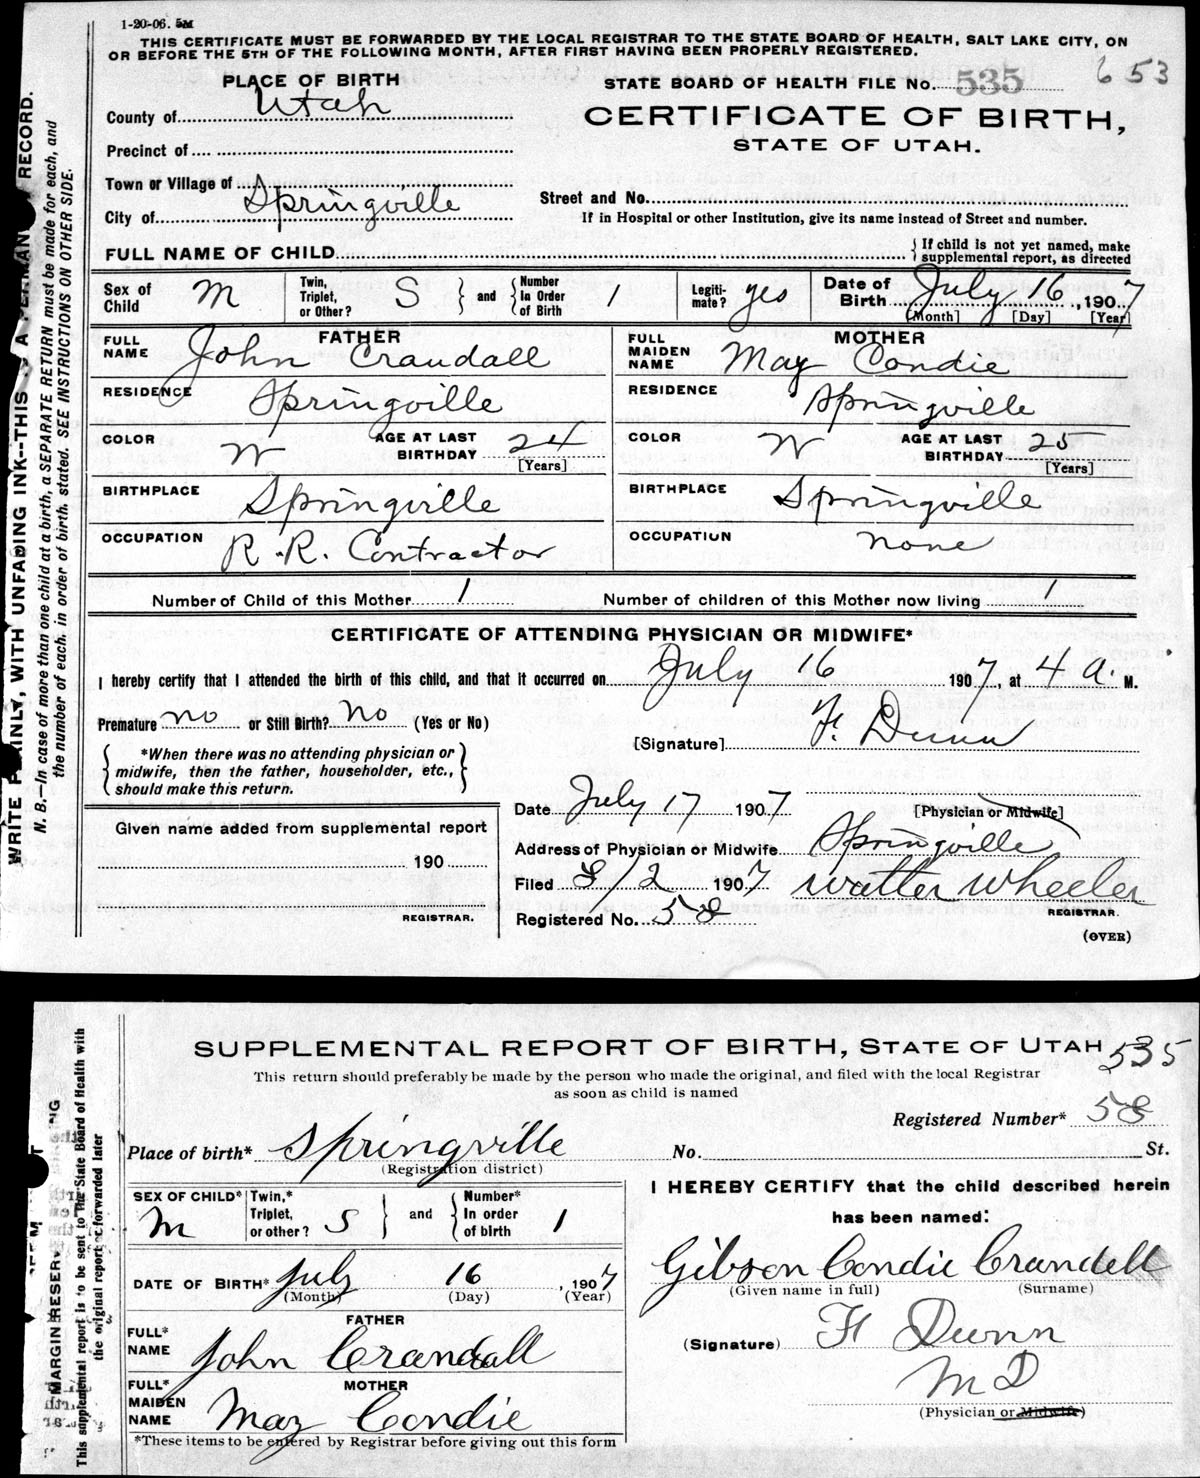 1-20-06. 5M
THIS CERTIFICATE MUST BE FORWARDED BY THE LOCAL REGISTRAR TO THE STATE BOARD OF HEALTH, SALT LAKE CITY, ON
OR BEFORE THE 5TH OF THE FOLLOWING MONTH, AFTER FIRST HAVING BEEN PROPERLY REGISTERED.
PLACE OF BIRTH
STATE BOARD OF HEALTH FILE No. 535 653
County of Utah
CERTIFICATE OF BIRTH,
STATE OF UTAH.
Precinct of
Town or Village of
City of Springville
Street and No.
If in Hospital or other Institution, give its name instead of Street and number.
FULL NAME OF CHILD
If child is not yet named, make
supplemental report, as directed
Sex of Child M Twin, Triplet, or Other? S and Number In Order of Birth 1 Legiti- mate? yes Date of Birth July 16, 1907
[Month] [Day] [Year]
FATHER MOTHER
FULL NAME John Crandall FULL MAIDEN NAME May Condie
RESIDENCE Springville RESIDENCE Springville
COLOR W AGE AT LAST BIRTHDAY 24 [Years] COLOR W AGE AT LAST BIRTHDAY 25 [Years]
BIRTHPLACE Springville BIRTHPLACE Springville
OCCUPATION R.R. Contractor OCCUPATION none
Number of Child of this Mother 1 Number of children of this Mother now living 1
CERTIFICATE OF ATTENDING PHYSICIAN OR MIDWIFE*
I hereby certify that I attended the birth of this child, and that it occurred on July 16 1907, at 4 a. M.
Premature no or Still Birth? No (Yes or No)
[Signature] F. Dunn
*When there was no attending physician or
midwife, then the father, householder, etc.,
should make this return.
Date July 17 1907 [Physician or Midwife]
Given name added from supplemental report
190
REGISTRAR.
Address of Physician or Midwife Springville
Filed 8/2 1907 Walter Wheeler
REGISTRAR.
Registered No. 58
(OVER)
WRITE PLAINLY, WITH UNFADING INK--THIS IS A RECORD.
N. B.—In case of more than one child at a birth, a SEPARATE RETURN must be made for each, and
the number of each, in order of birth, stated. SEE INSTRUCTIONS ON OTHER SIDE.
SUPPLEMENTAL REPORT OF BIRTH, STATE OF UTAH 535
This return should preferably be made by the person who made the original, and filed with the local Registrar
as soon as child is named
Registered Number* 58
Place of birth* Springville No. St.
(Registration district)
SEX OF CHILD* M Twin,* Triplet, or other? S and Number* In order of birth 1
I HEREBY CERTIFY that the child described herein
has been named:
Gibson Condie Crandell
(Given name in full) (Surname)
DATE OF BIRTH* July 16, 1907
(Month) (Day) (Year)
FATHER
FULL* NAME John Crandall
(Signature) F Dunn
MD
(Physician or Midwife)
MOTHER
FULL* MAIDEN NAME May Condie
*These items to be entered by Registrar before giving out this form
MARGIN RESERV
This supplemental report is to be sent to the State Board of Health with
the original report or forwarded later